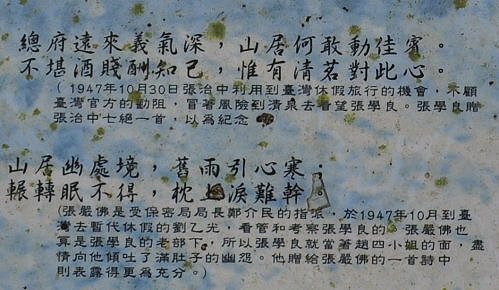 總府遠來義氣深，山居何敢動佳賓。
不堪酒賤酬知己，惟有清茗對此心。
（1947年10月30日張治中利用到臺灣休假旅行的機會，不顧
臺灣官方的勸阻，冒著風險到清泉去看望張學良。張學良贈
張治中七絕一首，以為紀念
山居幽處境，舊雨引心寒；
輾轉眠不得，枕上淚難幹。
(張嚴佛是受保密局局長鄭介民的指派，於1947年10月到臺
灣去暫代休假的劉乙光，看管和考察張學良的。張嚴佛也
算是張學良的老部下，所以張學良就當著趙四小姐的面，盡
情向他傾吐了滿肚子的幽怨。他贈給張嚴佛的一首詩中
則表露得更為充分。)